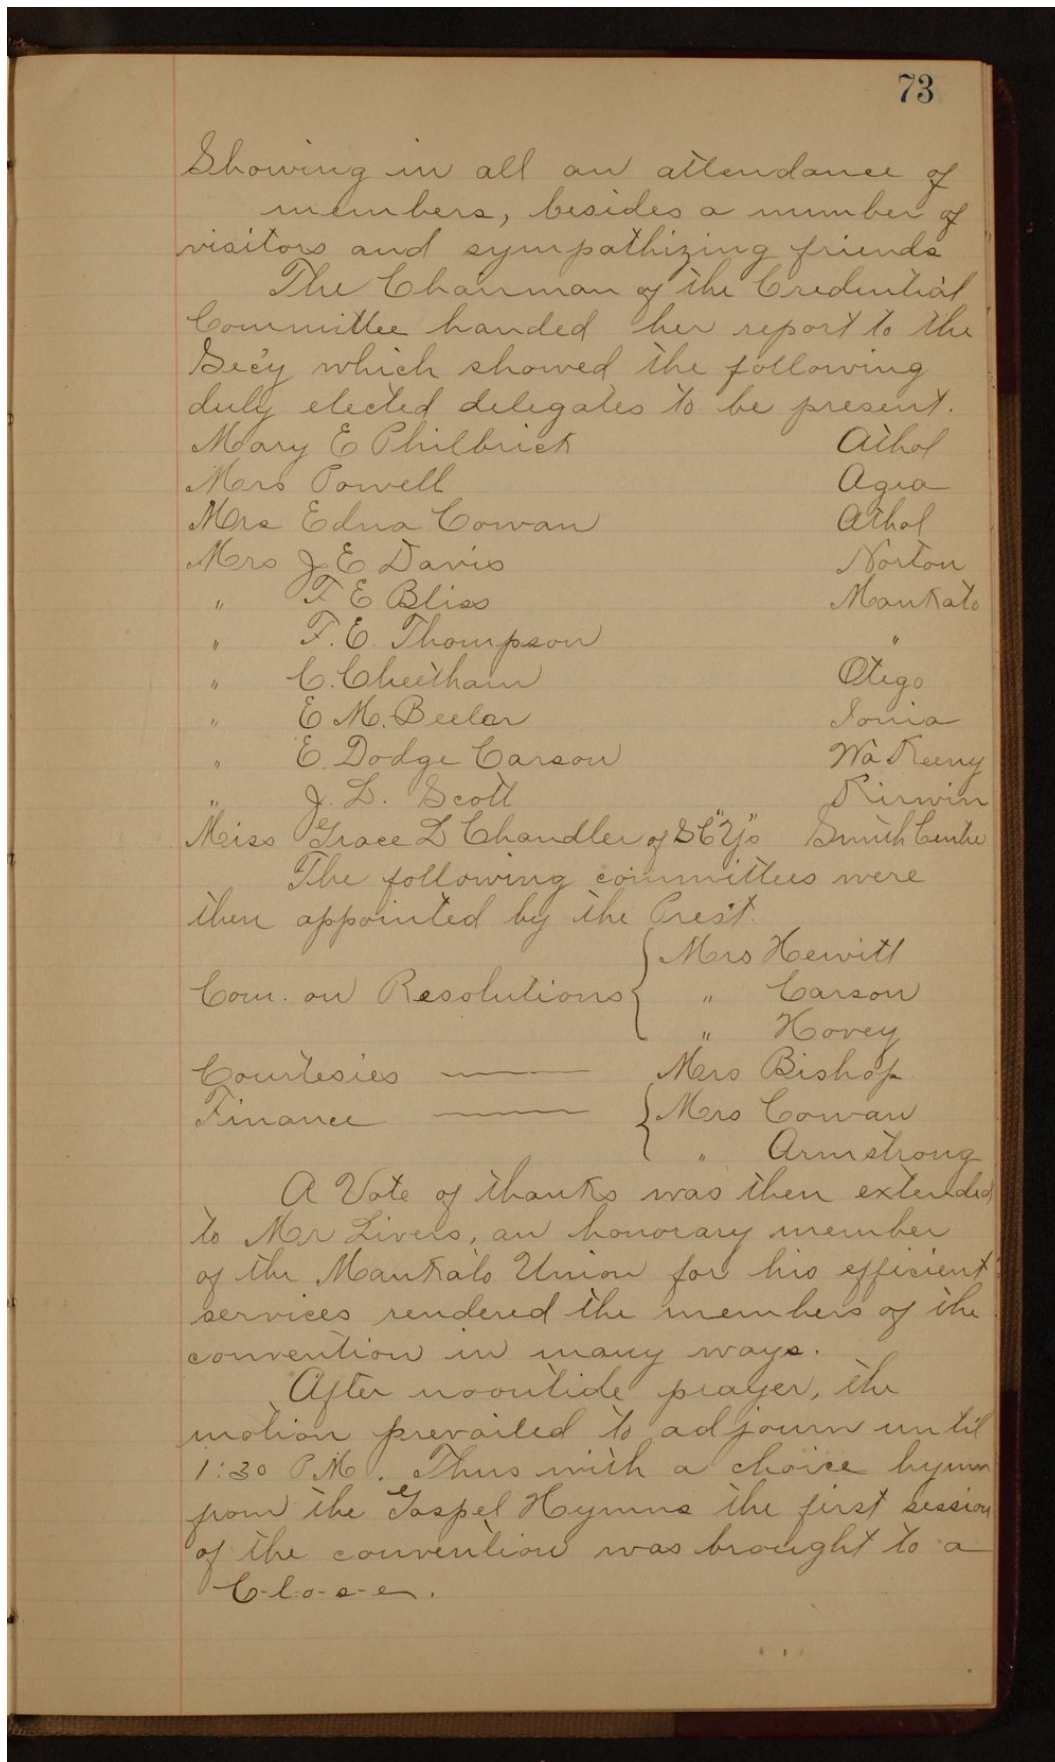 73
Showing in all an attendance of
members, besides a number of
visitors and sympathizing friends
The Chairman of the Credential
Committee handed her report to the
Sec'y which showed the following
duly elected delegates to be present.
Mary E Philbrick Athol
Mrs Powell Agra
Mrs Edna Cowan Athol
Mrs J E Davis Norton
" F E Bliss Mankato
" F. E. Thompson "
" C. Cheetham Otego
" E M. Beeler Ionia
" E. Dodge Carson Wa Keeny
" J. L. Scott Kirwin
Miss Grace L Chandler of S C "Y"s Smith Centre
The following committees were
then appointed by the Prest.
Mrs Hewitt
Com. on Resolutions { " Carson
" Hovey
Courtesies — Mrs Bishop
Finance — { Mrs Cowan
" Armstrong
A Vote of thanks was then extended
to Mr Livers, an honorary member
of the Mankato Union for his efficient
services rendered the members of the
convention in many ways.
After noontide prayer, the
motion prevailed to adjourn until
1:30 P.M. Thus with a choice hymn
from the Gospel Hymns the first session
of the convention was brought to a
C-l-o-s-e.